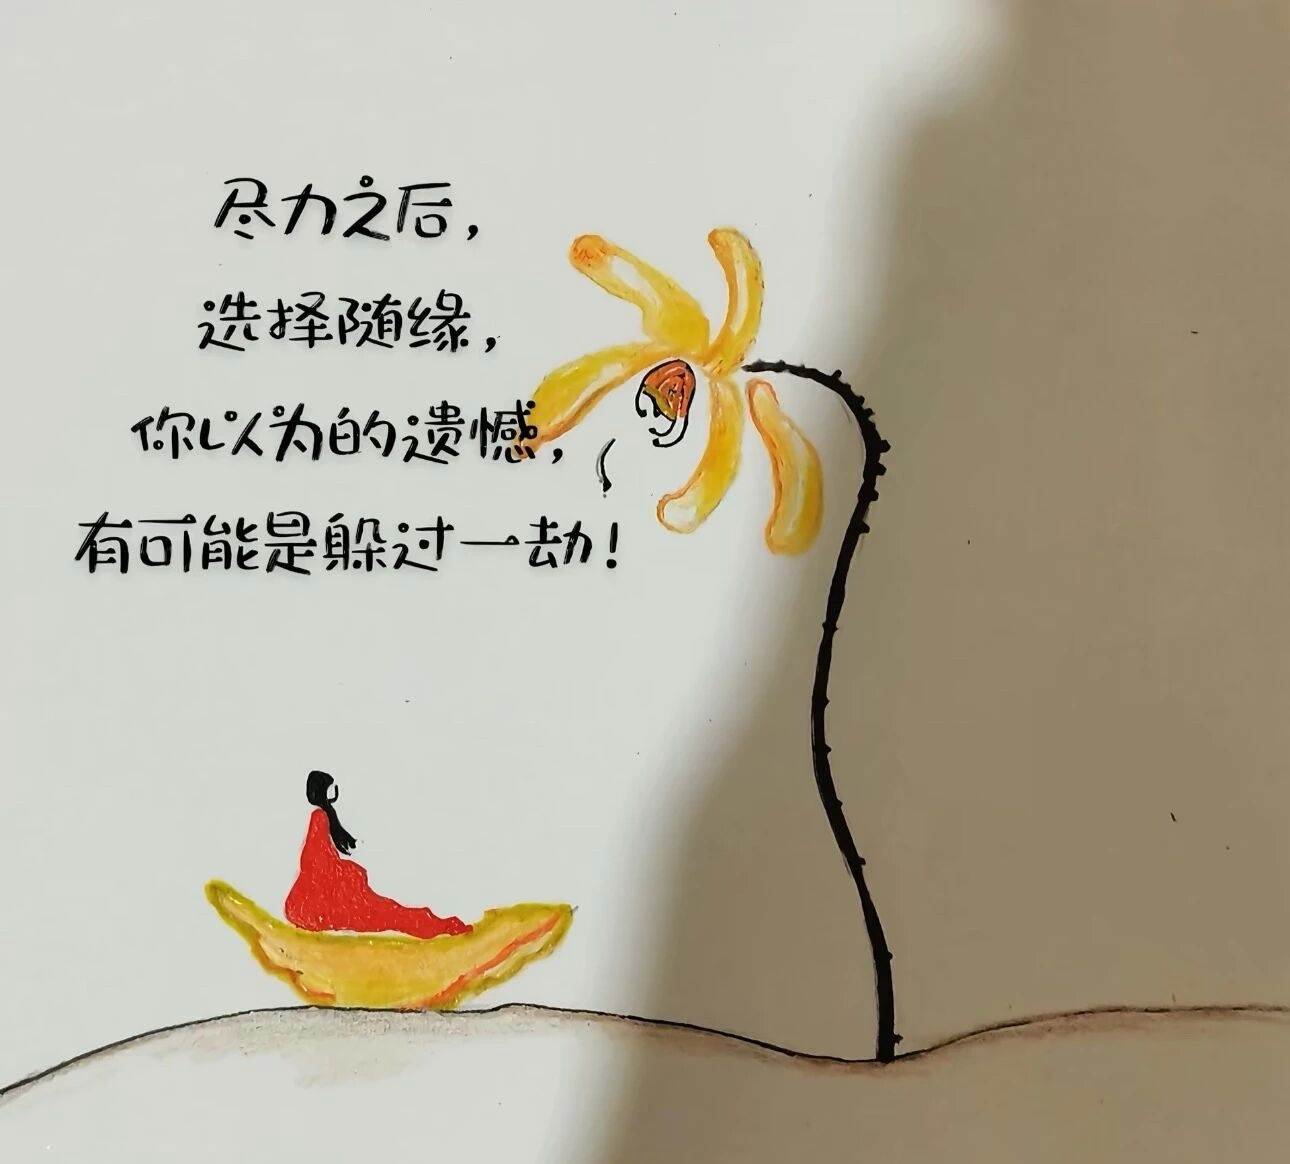 尽力之后，
选择随缘，
你以为的遗憾，
有可能是躲过一劫！